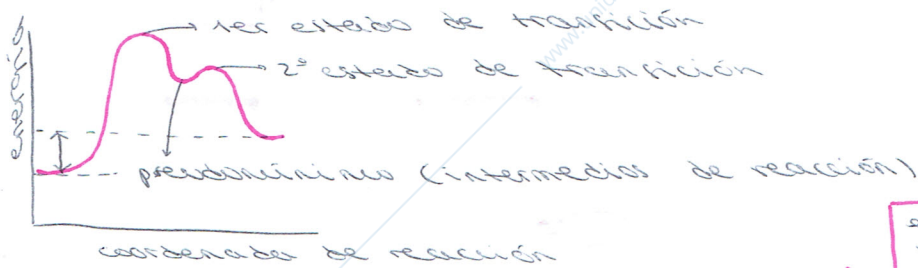 1er estado de transición
2º estado de transición
energía
pseudomínimo (intermedios de reacción)
coordenada de reacción